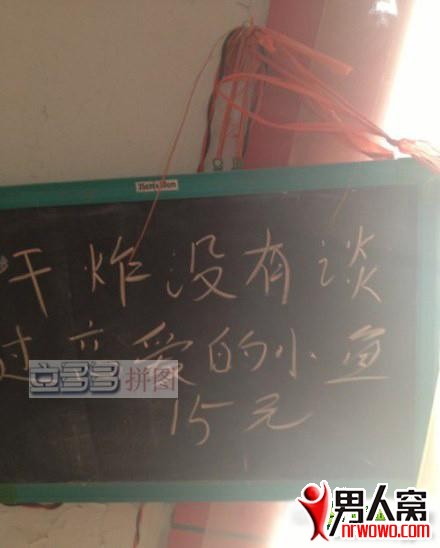 干炸没有谈
过恋爱的小鱼
拼图
15元
男人窝
nrwowo.com